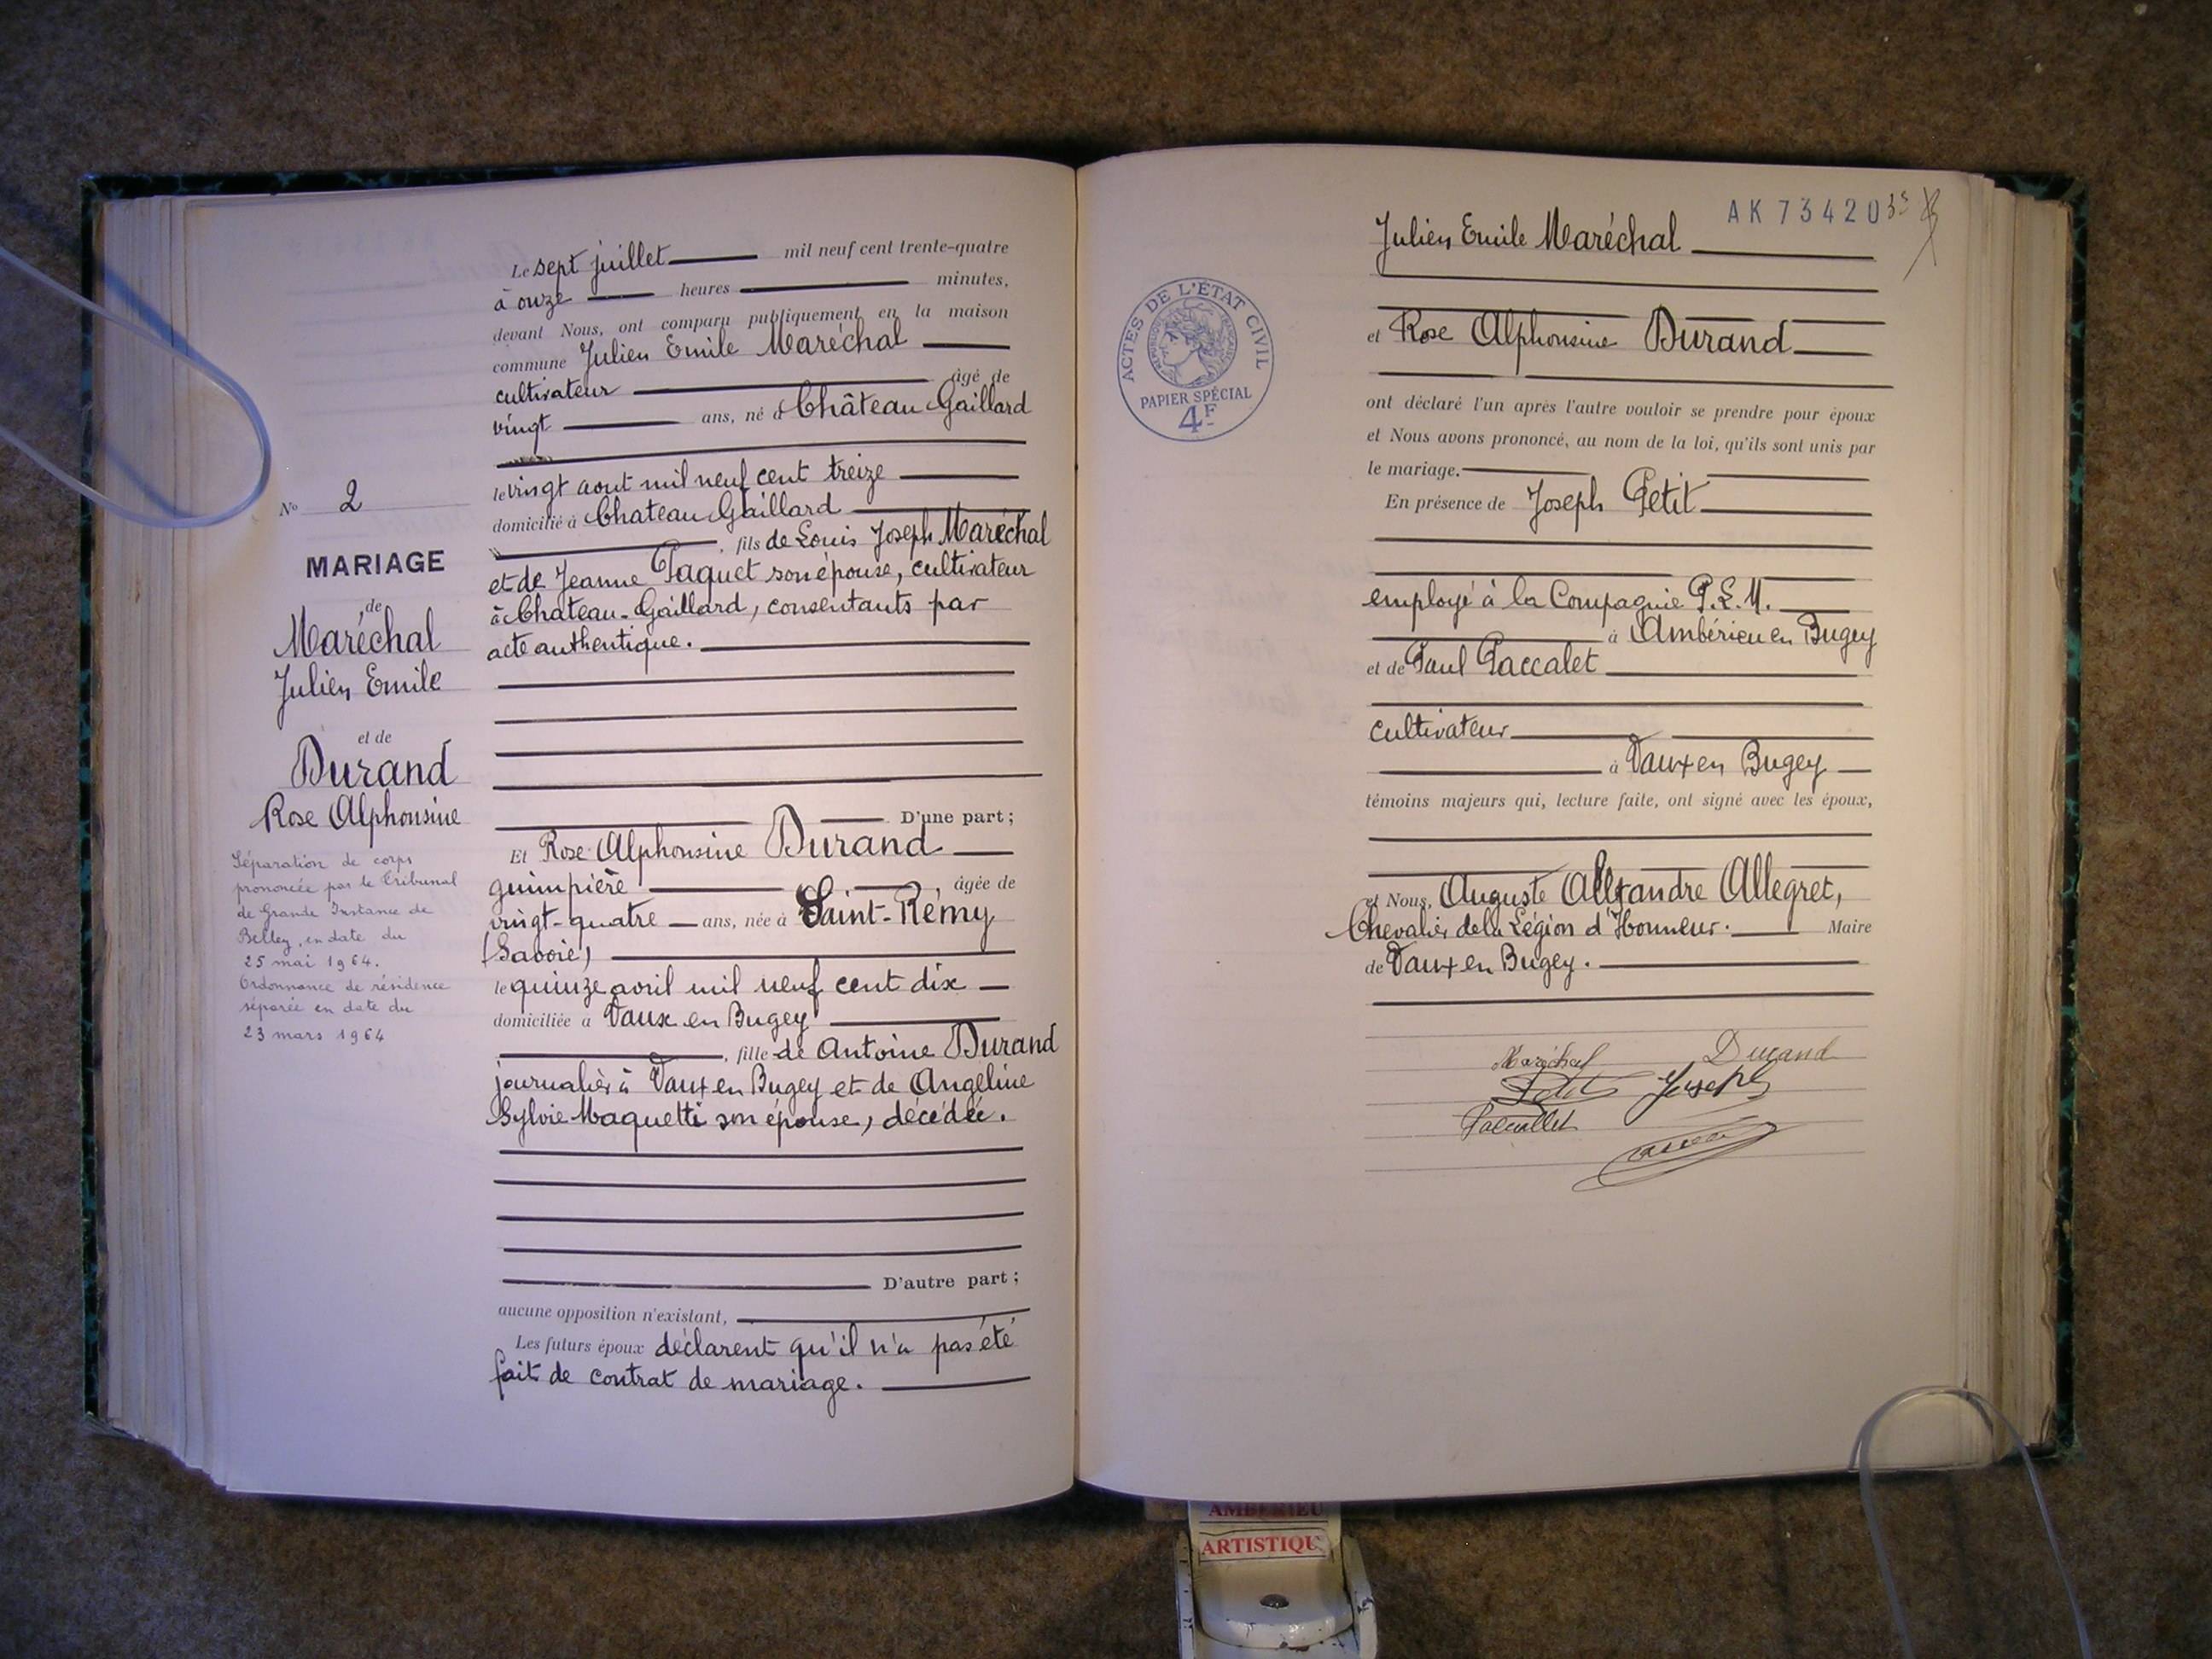 Le sept juillet mil neuf cent trente-quatre
à onze heures minutes,
devant Nous, ont comparu publiquement en la maison
commune Julien Emile Maréchal
cultivateur âgé de
vingt ans, né à Château Gaillard
le vingt aout mil neuf cent treize
domicilié à Chateau Gaillard
, fils de Louis Joseph Maréchal
et de Jeanne Paquet son épouse, cultivateur
à Chateau-Gaillard, consentants par
acte authentique.
D'une part;
Et Rose Alphonsine Durand
guimpière , âgée de
vingt-quatre ans, née à Saint-Rémy
(Savoie)
le quinze avril mil neuf cent dix
domiciliée à Vaux en Bugey
, fille de Antoine Durand
journalier à Vaux en Bugey et de Angeline
Sylvie Maquetti son épouse, décédée.
D'autre part;
aucune opposition n'existant,
Les futurs époux déclarent qu'il n'a pas été
fait de contrat de mariage.
No 2
MARIAGE
de
Maréchal
Julien Emile
et de
Durand
Rose Alphonsine
Séparation de corps
prononcée par le Tribunal
de Grande Instance de
Belley, en date du
25 mai 1964.
Ordonnance de résidence
séparée en date du
23 mars 1964
AK 73420 35
Julien Emile Maréchal
et Rose Alphonsine Durand
ont déclaré l'un après l'autre vouloir se prendre pour époux
et Nous avons prononcé, au nom de la loi, qu'ils sont unis par
le mariage.
En présence de Joseph Petit
employé à la Compagnie P.L.M.
à Ambérieu en Bugey
et de Paul Paccalet
cultivateur
à Vaux en Bugey
témoins majeurs qui, lecture faite, ont signé avec les époux,
et Nous, Auguste Alexandre Allegret,
Chevalier de la Légion d'Honneur. Maire
de Vaux en Bugey.
Maréchal Durand
Petit Joseph
Paccallet
ACTES DE L'ÉTAT CIVIL
RÉPUBLIQUE FRANÇAISE
PAPIER SPÉCIAL
4F
AMBERIEU
ARTISTIQU